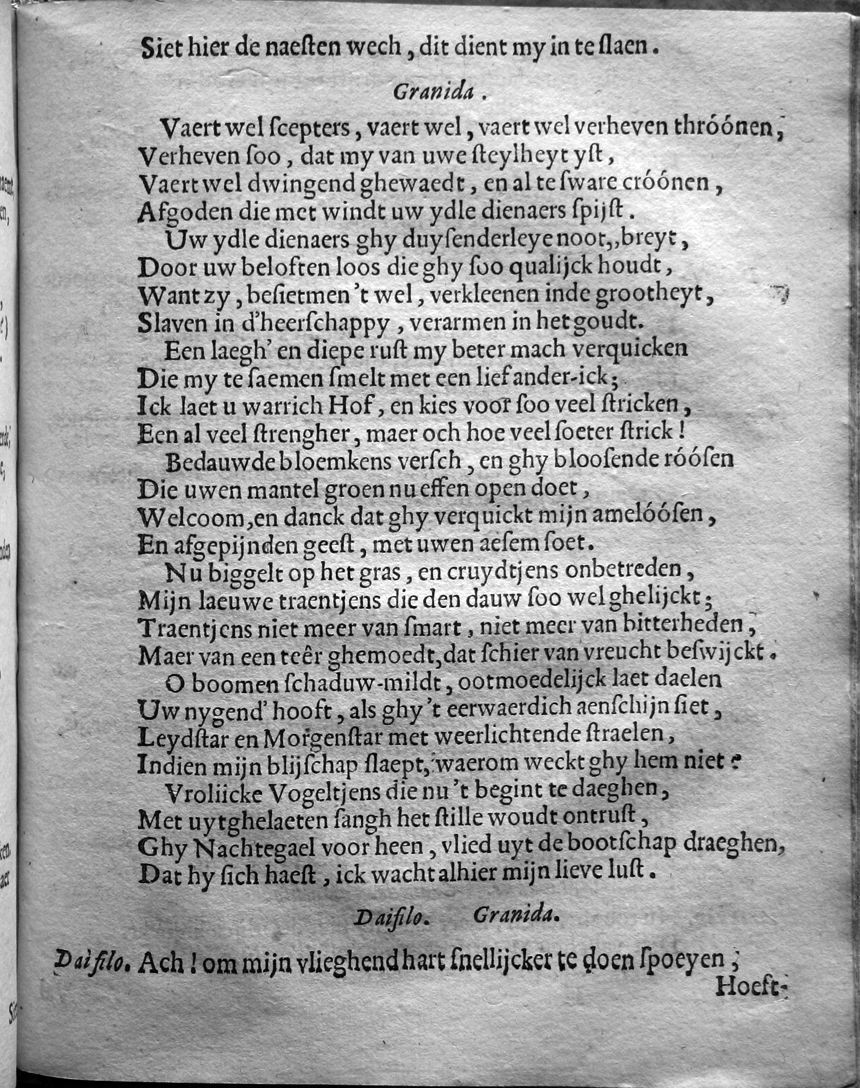 Siet hier de naeſten wech, dit dient my in te ſlaen.
Granida.
Vaert wel ſcepters, vaert wel, vaert wel verheven thróónen,
Verheven ſoo, dat my van uwe ſteylheyt yſt,
Vaert wel dwingend ghewaedt, en al te ſware cróónen,
Afgoden die met windt uw ydle dienaers ſpijſt.
Uw ydle dienaers ghy duyſenderleye noot,,breyt,
Door uw beloften loos die ghy ſoo qualijck houdt,
Want zy, beſietmen 't wel, verkleenen inde grootheyt,
Slaven in d'heerſchappy, verarmen in het goudt.
Een laegh' en diepe ruſt my beter mach verquicken
Die my te ſaemen ſmelt met een lief ander-ick;
Ick laet u warrich Hof, en kies voor ſoo veel ſtricken,
Een al veel ſtrengher, maer och hoe veel ſoeter ſtrick!
Bedauwde bloemkens verſch, en ghy blooſende róóſen
Die uwen mantel groen nu effen open doet,
Welcoom,en danck dat ghy verquickt mijn amelóóſen,
En afgepijnden geeſt, met uwen aeſem ſoet.
Nu biggelt op het gras, en cruydtjens onbetreden,
Mijn laeuwe traentjens die den dauw ſoo wel ghelijckt;
Traentjens niet meer van ſmart, niet meer van bitterheden,
Maer van een teêr ghemoedt,dat ſchier van vreucht beſwijckt.
O boomen ſchaduw-mildt, ootmoedelijck laet daelen
Uw nygend' hooft, als ghy 't eerwaerdich aenſchijn ſiet,
Leydſtar en Morgenſtar met weerlichtende ſtraelen,
Indien mijn blijſchap ſlaept, waerom weckt ghy hem niet?
Vroliicke Vogeltjens die nu 't begint te daeghen,
Met uytghelaeten ſangh het ſtille woudt ontruſt,
Ghy Nachtegael voor heen, vlied uyt de bootſchap draeghen,
Dat hy ſich haeſt, ick wacht alhier mijn lieve luſt.
Daiſilo. Granida.
Daiſilo. Ach! om mijn vlieghend hart ſnellijcker te doen ſpoeyen;
Hoeft-